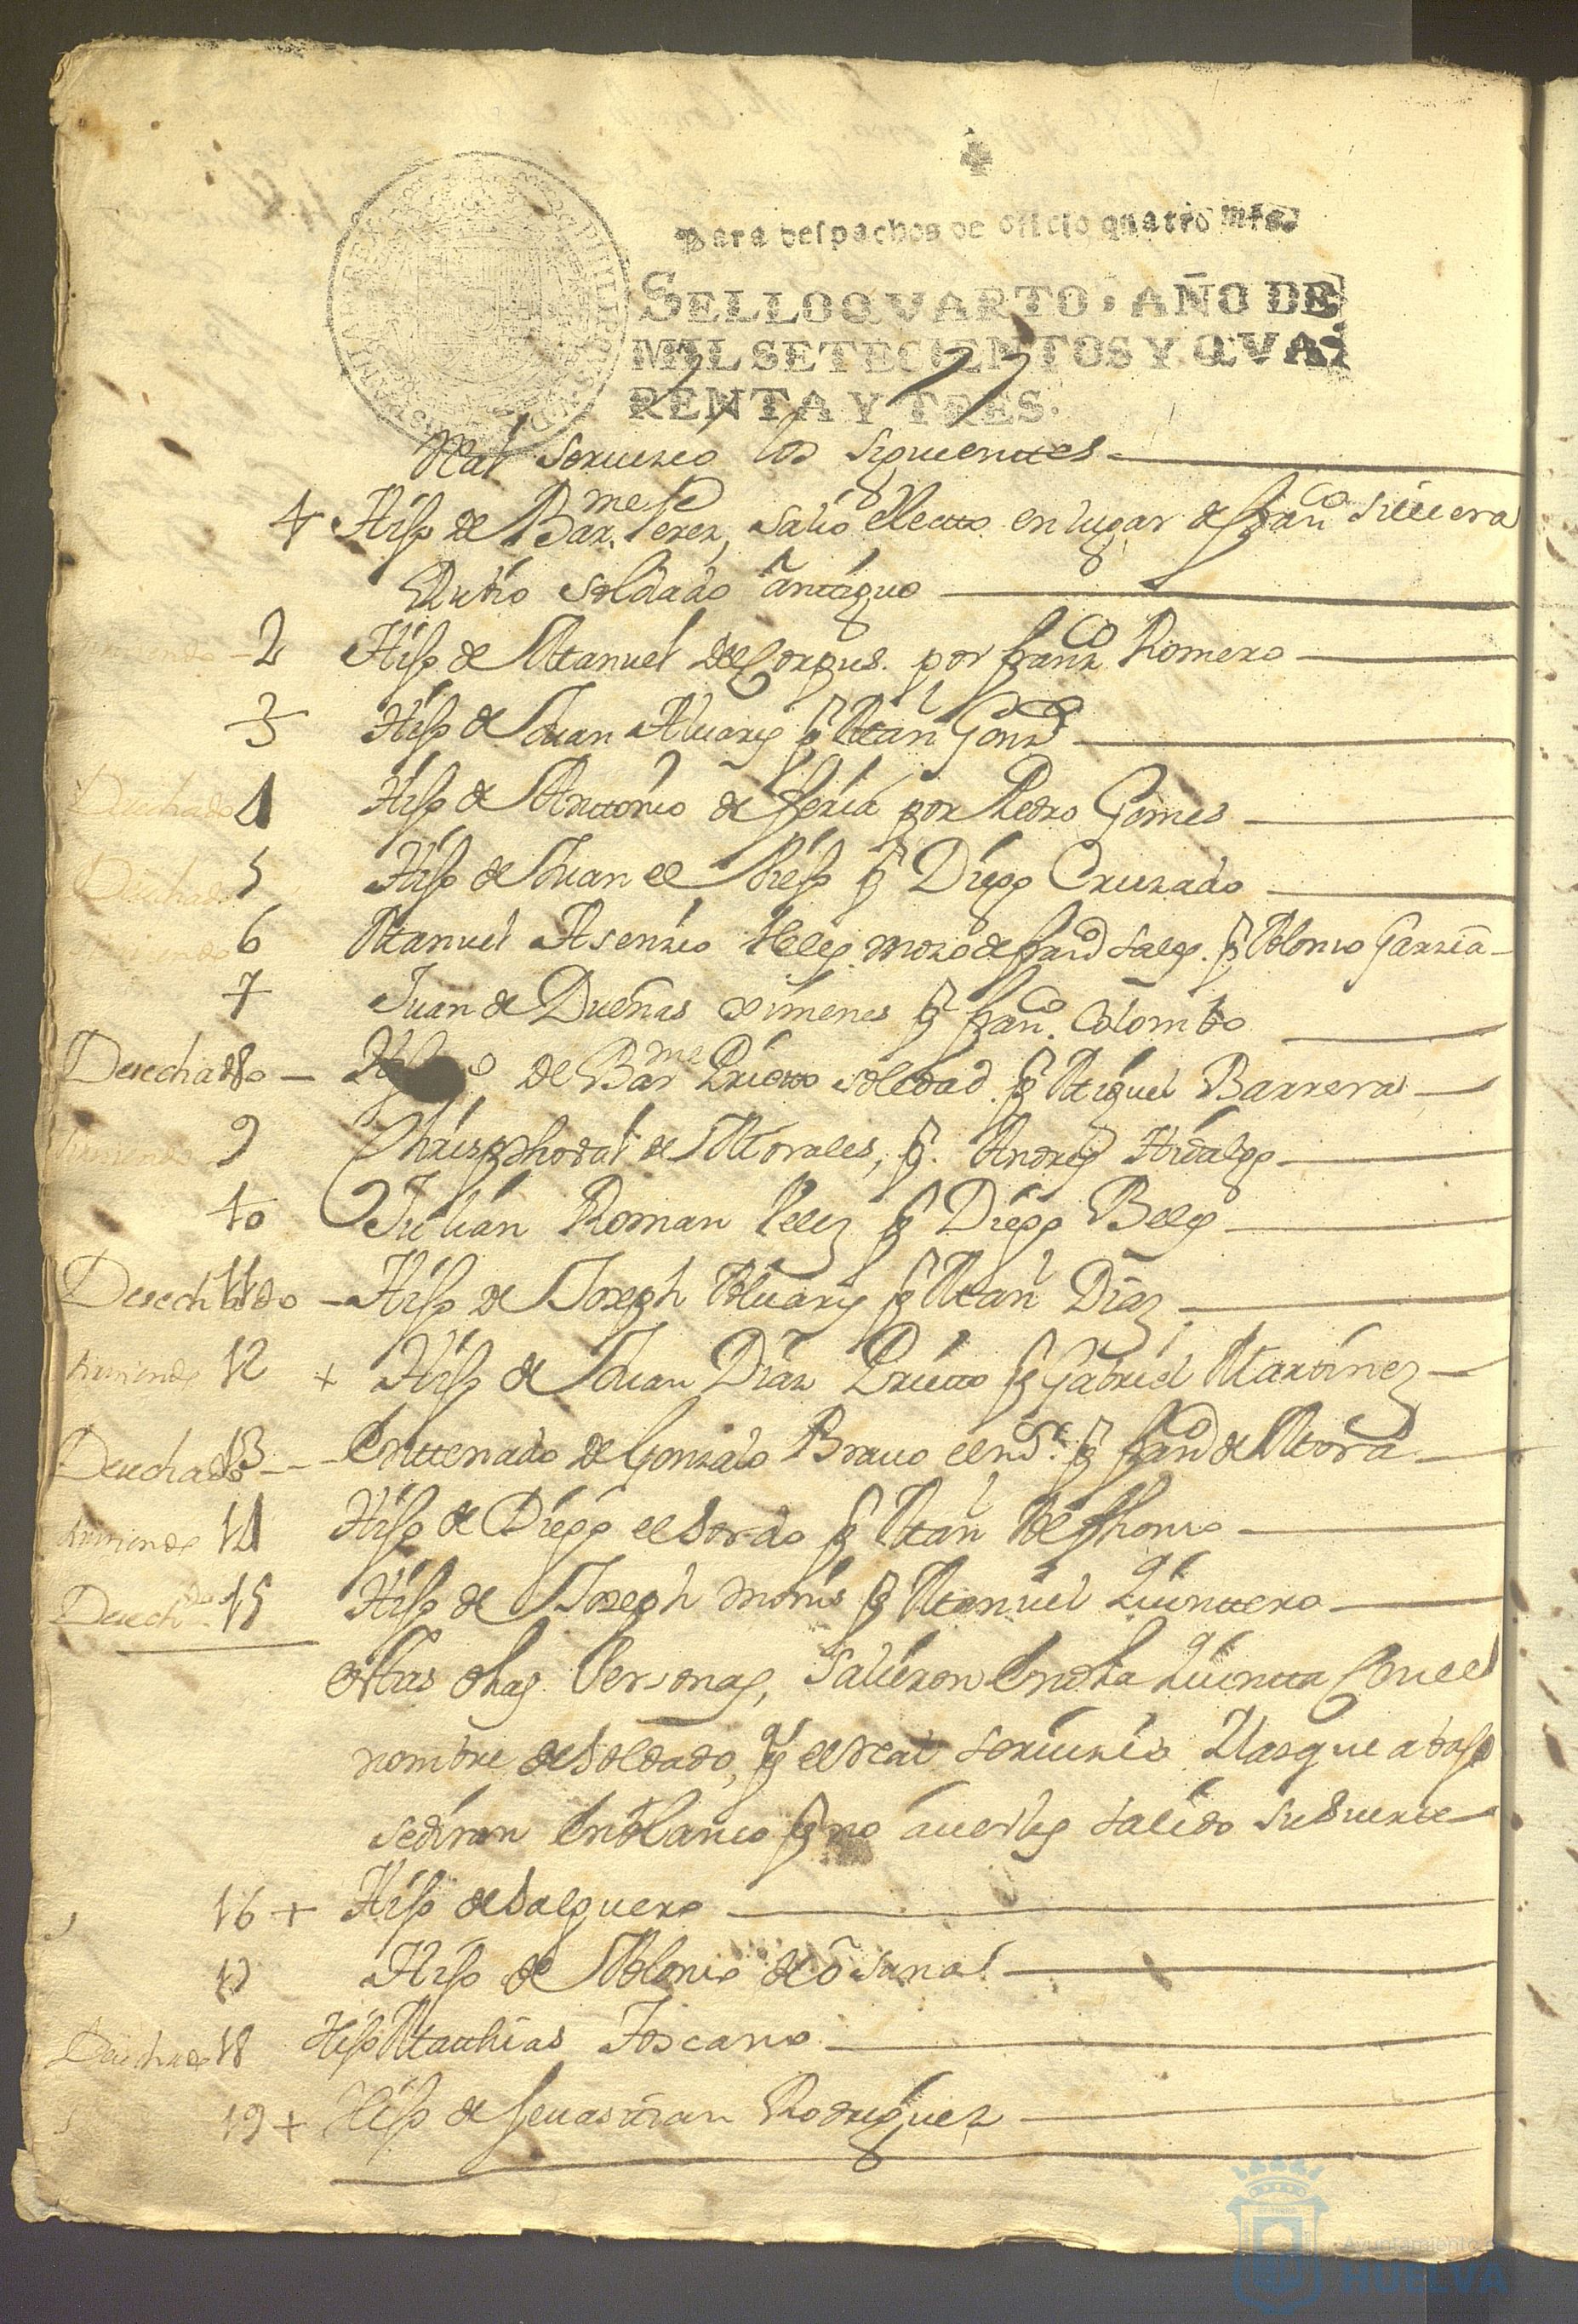 Para despachos de oficio quatro mrs.
SELLO QVARTO, AÑO DE
MIL SETECIENTOS Y QVA-
RENTA Y TRES.
Real servicio los siguienttes
1 Hijo de Barme Perez, salio electto en lugar de Franco
Rubio soldado anttiguo
2 Hijo de Manuel del Corpus. por Franco Romero
3 Hijo de Juan Alvarez p Manl Gonz
Desechado 4 Hijo de Anttonio de Feria por Pedro Gomes
Desechado 5 Hijo de Juan el Viejo p Diego Cruzado
6 Manuel Asenzio Velez mozo de p Alonso Garzia
7 Juan de Dueñas Ximenes p Franco. Colombo
Desechado 8 Hijo de Barme Prietto soledad. p Miguel Barrera
9 Chrisphobal de Morales, p. Andres Hidalgo
10 Julian Roman Velez p Diego Belez
Desechado 11 Hijo de Joseph Alvarez p Manl Diaz
12 + Hijo de Juan Diaz Prietto p Gabriel Martinez
Desechado 13 Enttenado de Gonzalo Bravo p de Mora
14 Hijo de Diego el Sordo p Manl Alfhonso
Desechdo 15 Hijo de Joseph Monis p Manuel Quinttero
esttas dhas Personas, salieron en dha quintta con el
nombre de soldado, p el real servizio Y las que abajo
se diran en blanco p no averles salido su suerte
16 + Hijo de Salguero
17 Hijo de Alonso de Osuna
Desechado 18 Hijo Matthias Toscano
19 + Hijo de Sevastian Rodriguez
Ayuntamiento
HUELVA